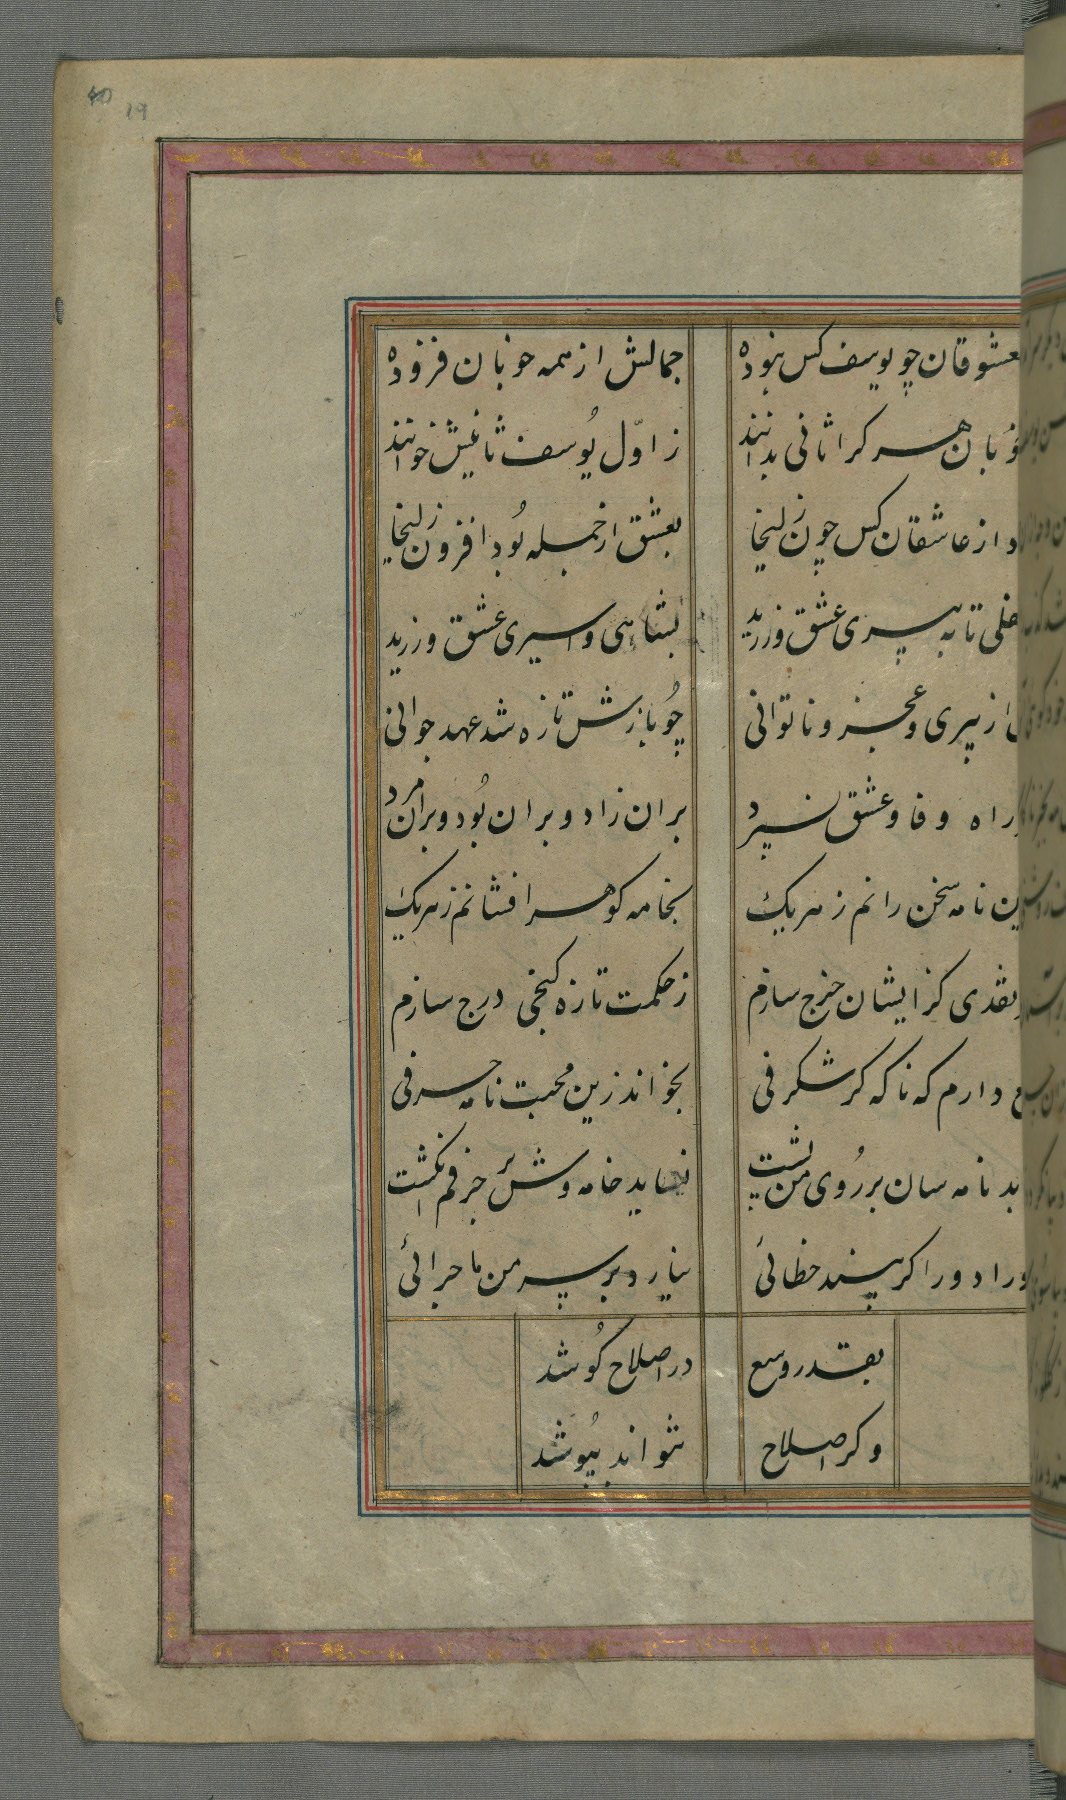 40 19
معشوقان چو یوسف کس نبوده جمالش از همه خوبان فزوده
خوبان هر کرا ثانی بدانند ز اوّل یُوسف ثانیش خوانند
از عاشقان کس چون زلیخا بعشق از جمله بُود افزون زلیخا
تا به پیری عشق ورزید بشاهی و اسیری عشق ورزید
از پیری و عجز و ناتوانی چُو بازش تازه شد عهد جوانی
راه وفا و عشق نسپرد بران زاد و بران بُود و بران مرد
نامه سخن رانم ز هریک بخامه کوهر افشانم ز هریک
نقدی کز ایشان خرج سازم ز حکمت تازه کنجی درج سازم
دارم که ناکه کر شکرفی بخواند زین محبت نامه حرفی
نامه سان بر رُوی من پشت نساید خامه وش بر حرفم انکشت
ورا دورا کر بیند خطائی نیارد بر سر من ماجرائی
بقدر وسع در اصلاح کُوشد
و کر اصلاح نتواند بپُوشد